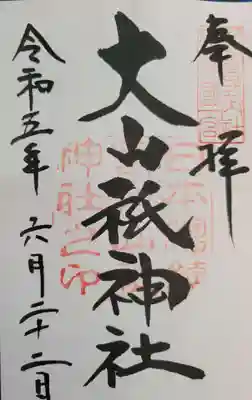 奉拝
大山祇神社
令和五年 六月二十二日